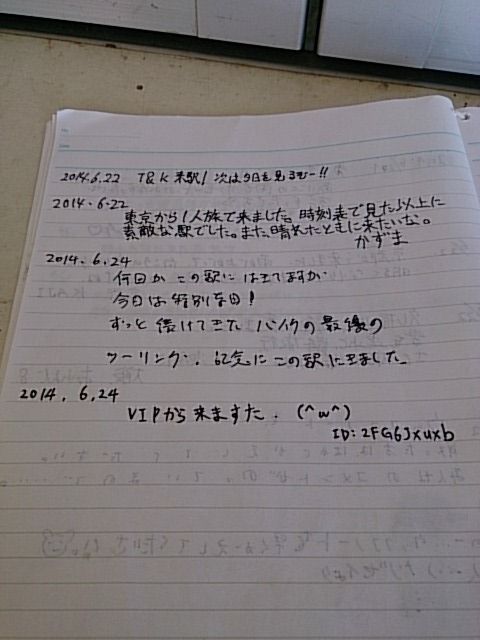 2014.6.22 T&K 来駅! 次は夕日を見るぞー!!
2014.6.22
東京から1人旅で来ました。時刻表で見た以上に
素敵な駅でした。また、晴れたときに来たいな。
かずま
2014.6.24
何回か この駅に は来てますが
今日は特別な日!
ずっと 続けてきた バイクの最後の
ツーリング. 記念に この駅に来ました。
2014.6.24
VIPから来ますた. (^ω^)
ID:2FG6Jxuxb